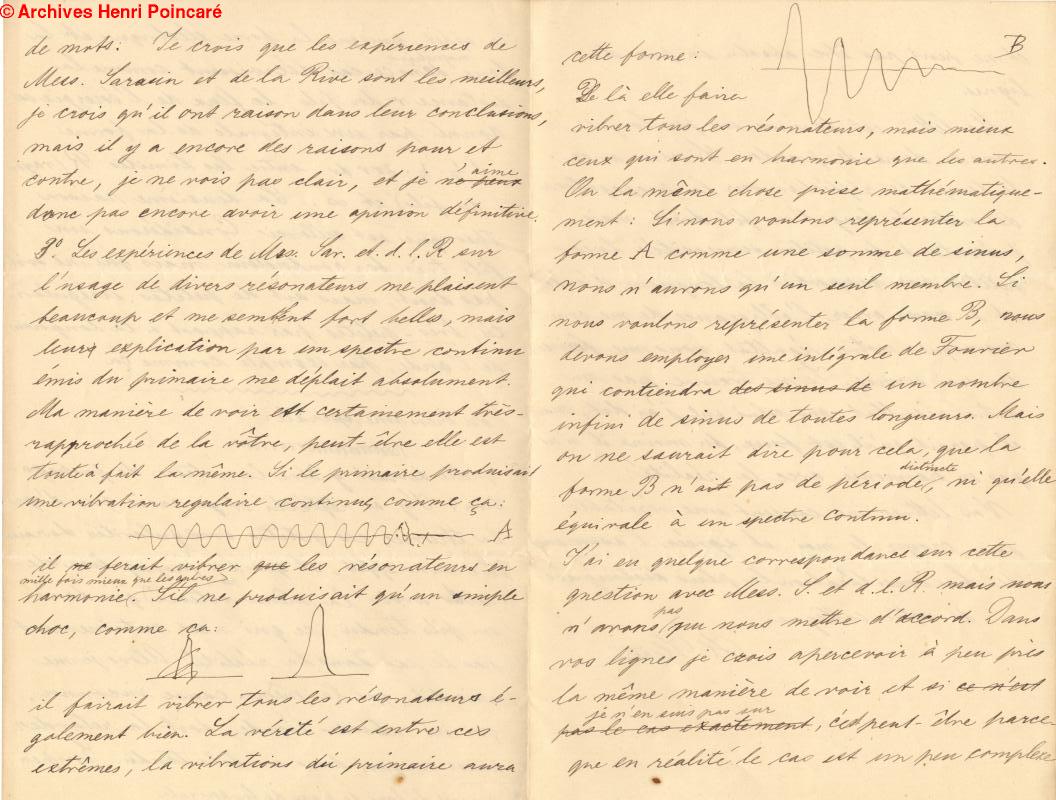 © Archives Henri Poincaré
de mots. Je crois que les expériences de
Mess. Sarasin et de la Rive sont les meilleurs,
je crois qu'il ont raison dans leur conclusions,
mais il y a encore des raisons pour et
contre, je ne vois pas clair, et je n'aime
donc pas encore avoir une opinion définitive.
3º. Les expériences de Mss. Sar. et. d. l. R sur
l'usage de divers résonateurs me plaisent
beaucoup et me semblent fort belles, mais
leur explication par un spectre continu
émis du primaire me déplait absolument.
Ma manière de voir est certainement très-
rapprochée de la vôtre, peut-être elle est
toute à fait la même. Si le primaire produisait
une vibration regulaire continue, comme ça:
A
il ne ferait vibrer que les résonateurs en
mille fois mieux que les autres
harmonie. S'il ne produisait qu'un simple
choc, comme ça:
il fairait vibrer tous les résonateurs é-
galement bien. La vérité est entre ces
extrêmes, la vibrations du primaire aura
B
cette forme:
De là elle faira
vibrer tous les résonateurs, mais mieux
ceux qui sont en harmonie que les autres.
Ou la même chose prise mathématique-
ment: Si nous voulons représenter la
forme A comme une somme de sinus,
nous n'aurons qu'un seul membre. Si
nous voulons représenter la forme B, nous
devons employer une intégrale de Fourier
qui contiendra des sinus de un nombre
infini de sinus de toutes longueurs. Mais
on ne saurait dire pour cela, que la
distincte
forme B n'ait pas de période, ni qu'elle
équivale à un spectre continu.
J'ai eu quelque correspondance sur cette
question avec Mess. S. et d. l. R. mais nous
n'avons pas pu nous mettre d'accord. Dans
vos lignes je crois apercevoir à peu près
la même manière de voir et si ce n'est
je n'en suis pas sur
pas le cas exactement, c'est peut-être parce-
que en réalité le cas est un peu complexe